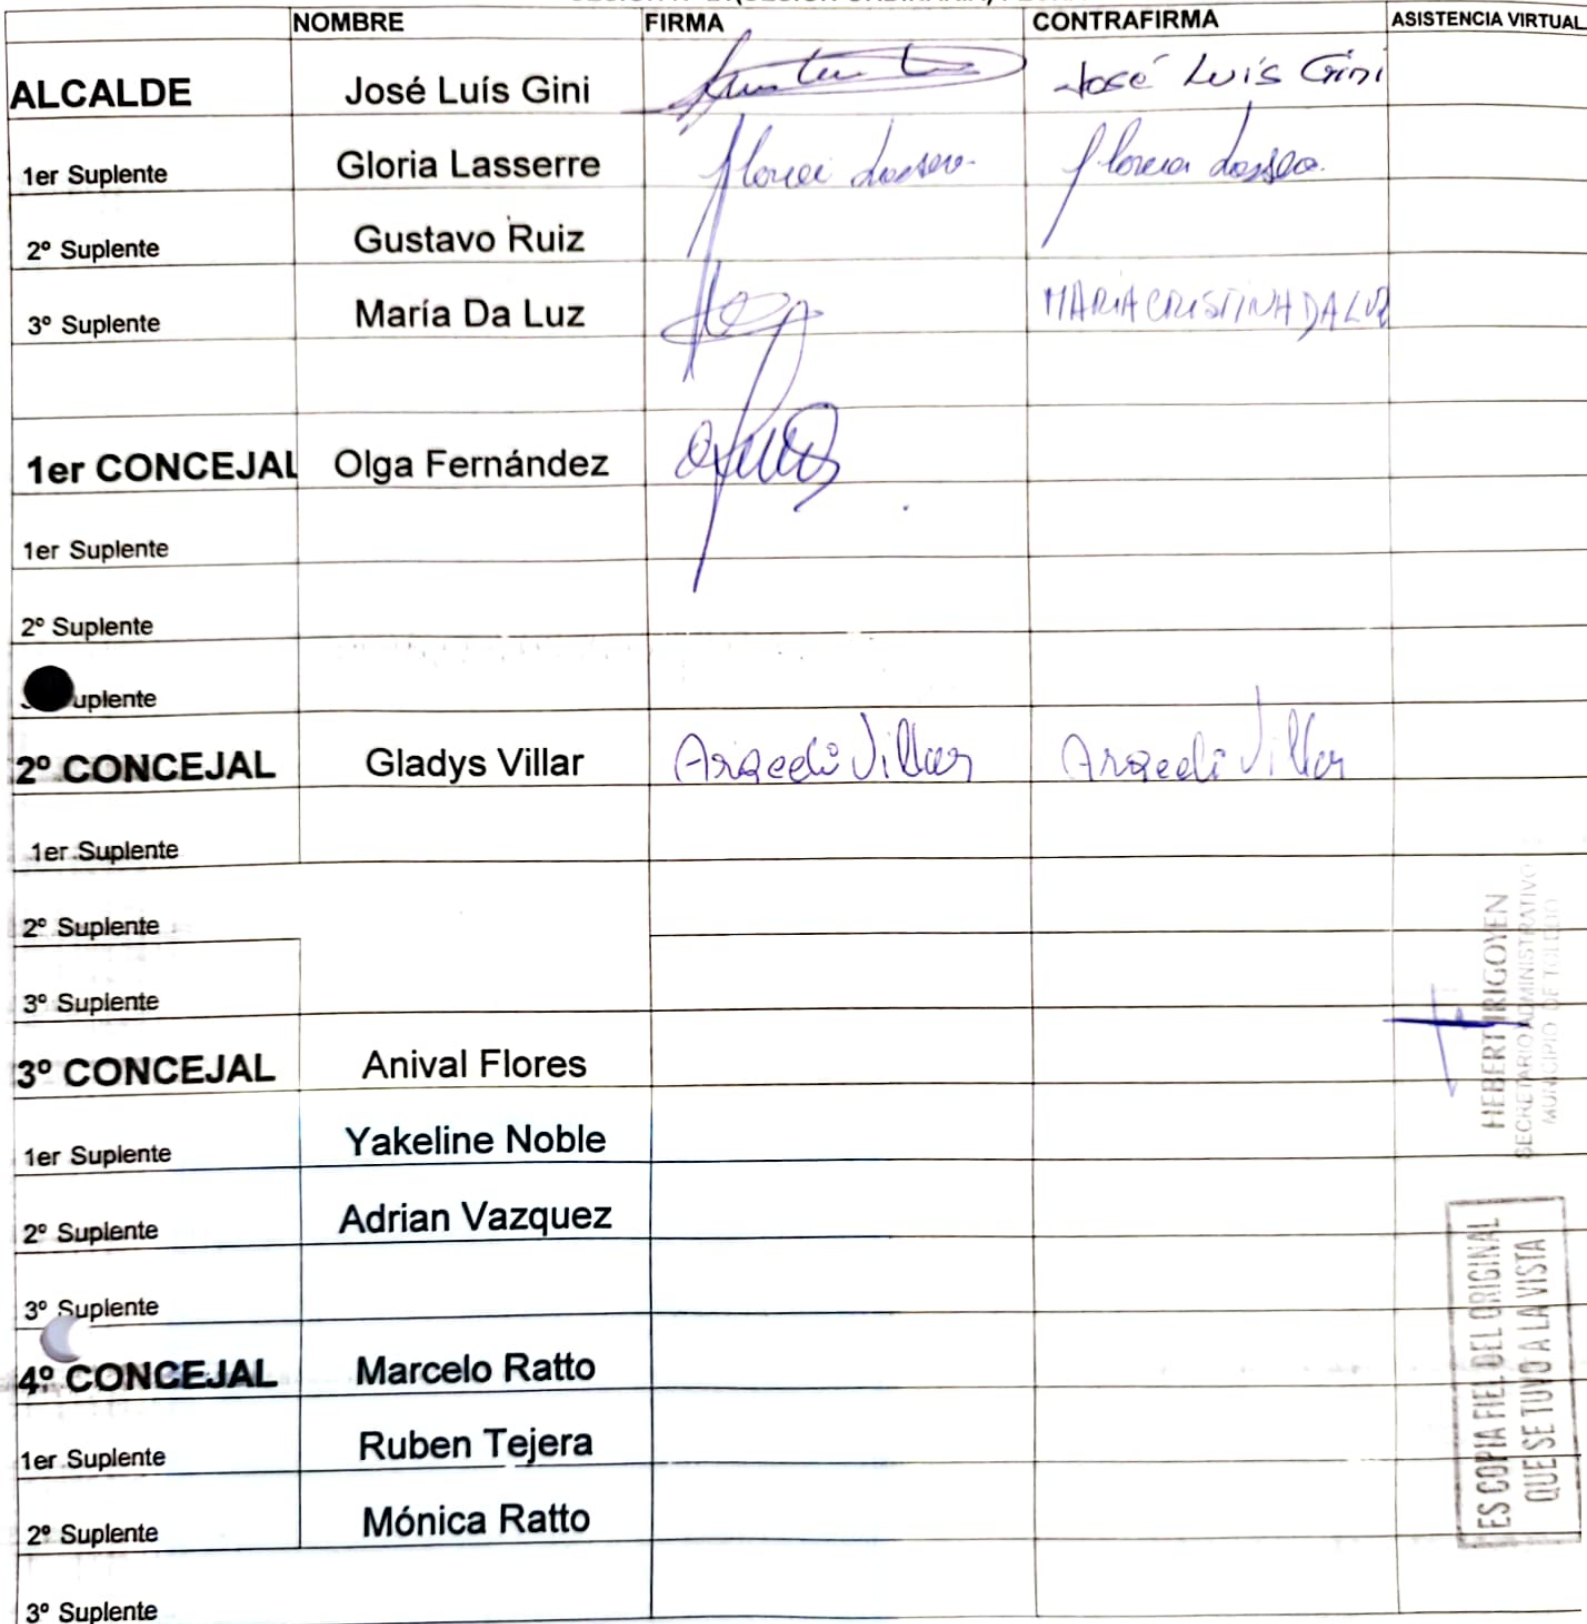 NOMBRE FIRMA CONTRAFIRMA ASISTENCIA VIRTUAL
ALCALDE José Luís Gini José Luis Gini
1er Suplente Gloria Lasserre
2º Suplente Gustavo Ruiz
3º Suplente María Da Luz MARIA CRISTINA DA LUZ
1er CONCEJAL Olga Fernández
1er Suplente
2º Suplente
uplente
2º CONCEJAL Gladys Villar Araceli Villar Araceli Villar
1er Suplente
2º Suplente
3º Suplente
3º CONCEJAL Anival Flores
1er Suplente Yakeline Noble
2º Suplente Adrian Vazquez
3º Suplente
4º CONCEJAL Marcelo Ratto
1er Suplente Ruben Tejera
2º Suplente Mónica Ratto
3º Suplente
HEBERT IRIGOYEN
SECRETARIO ADMINISTRATIVO
MUNICIPIO DE TOLEDO
ES COPIA FIEL DEL ORIGINAL
QUE SE TUVO A LA VISTA